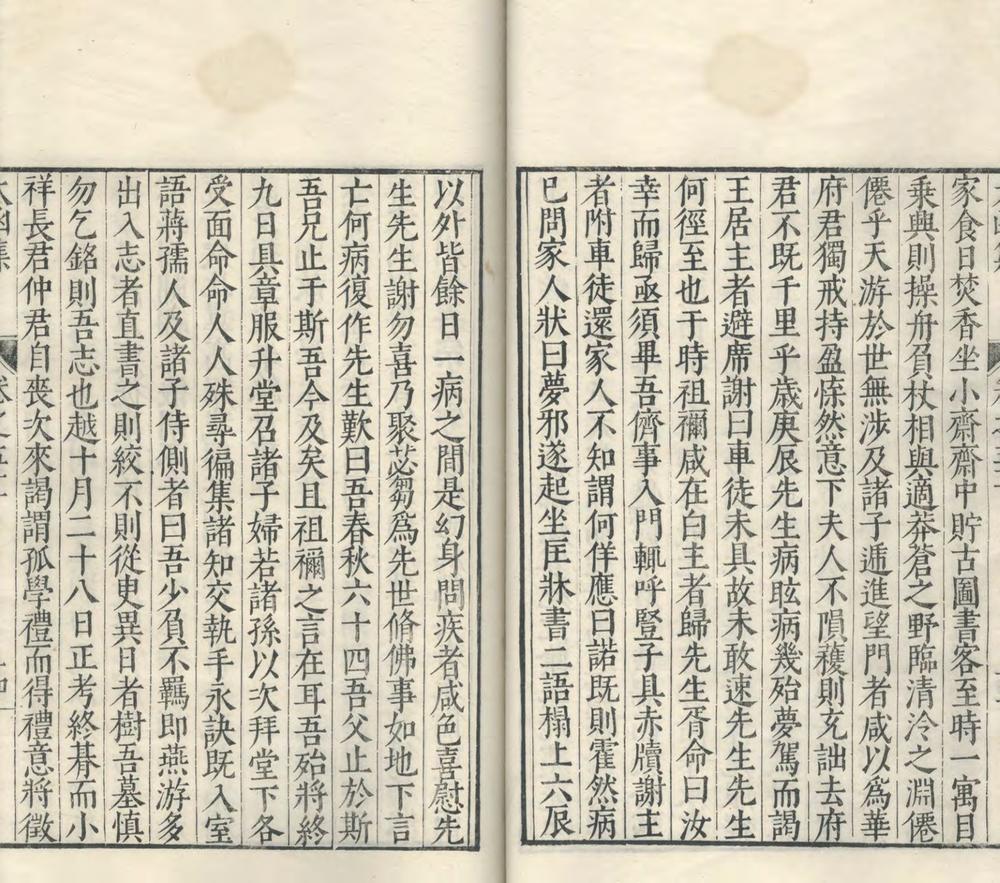 家食日焚香坐小齋齋中貯古圖書客至時一寓目
乗興則操舟負杖相與適莽蒼之野臨清泠之淵僊
僊乎天游於世無涉及諸子逓進望門者咸以爲華
府君獨戒持盈悇然意下夫人不隕穫則充詘去府
君不既千里乎歲庚辰先生病眩病幾殆夢駕而謁
王居主者避席謝曰車徒未具故未敢速先生先生
何徑至也于時祖禰咸在白主者歸先生胥命曰汝
幸而歸亟須畢吾儕事入門輒呼豎子具赤牘謝主
者附車徒還家人不知謂何佯應曰諾既則霍然病
已問家人狀曰夢邪遂起坐匡牀書二語榻上六辰
以外皆餘日一病之間是幻身問疾者咸色喜慰先
生先生謝勿喜乃聚苾蒭爲先世脩佛事如地下言
亡何病復作先生歎曰吾春秋六十四吾父止於斯
吾兄止于斯吾今及矣且祖禰之言在耳吾殆將終
九日具章服升堂召諸子婦若諸孫以次拜堂下各
受面命命人人殊尋徧集諸知交執手永訣既入室
語蔣孺人及諸子侍側者曰吾少負不羈即燕游多
出入志者直書之則絞不則從臾異日者樹吾墓慎
勿乞銘則吾志也越十月二十八日正考終朞而小
祥長君仲君自喪次來謁謂孤學禮而得禮意將徵